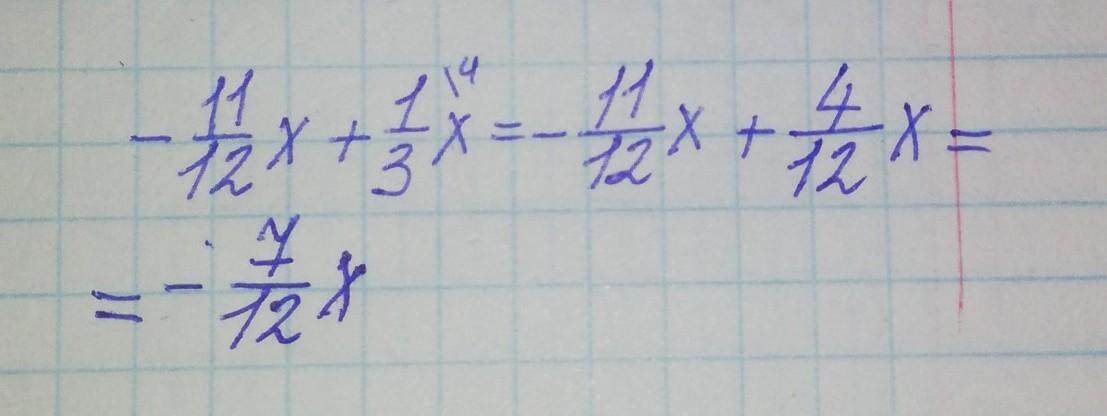 -11/12 x + 1/3 x \4 = -11/12 x + 4/12 x =
= -7/12 x